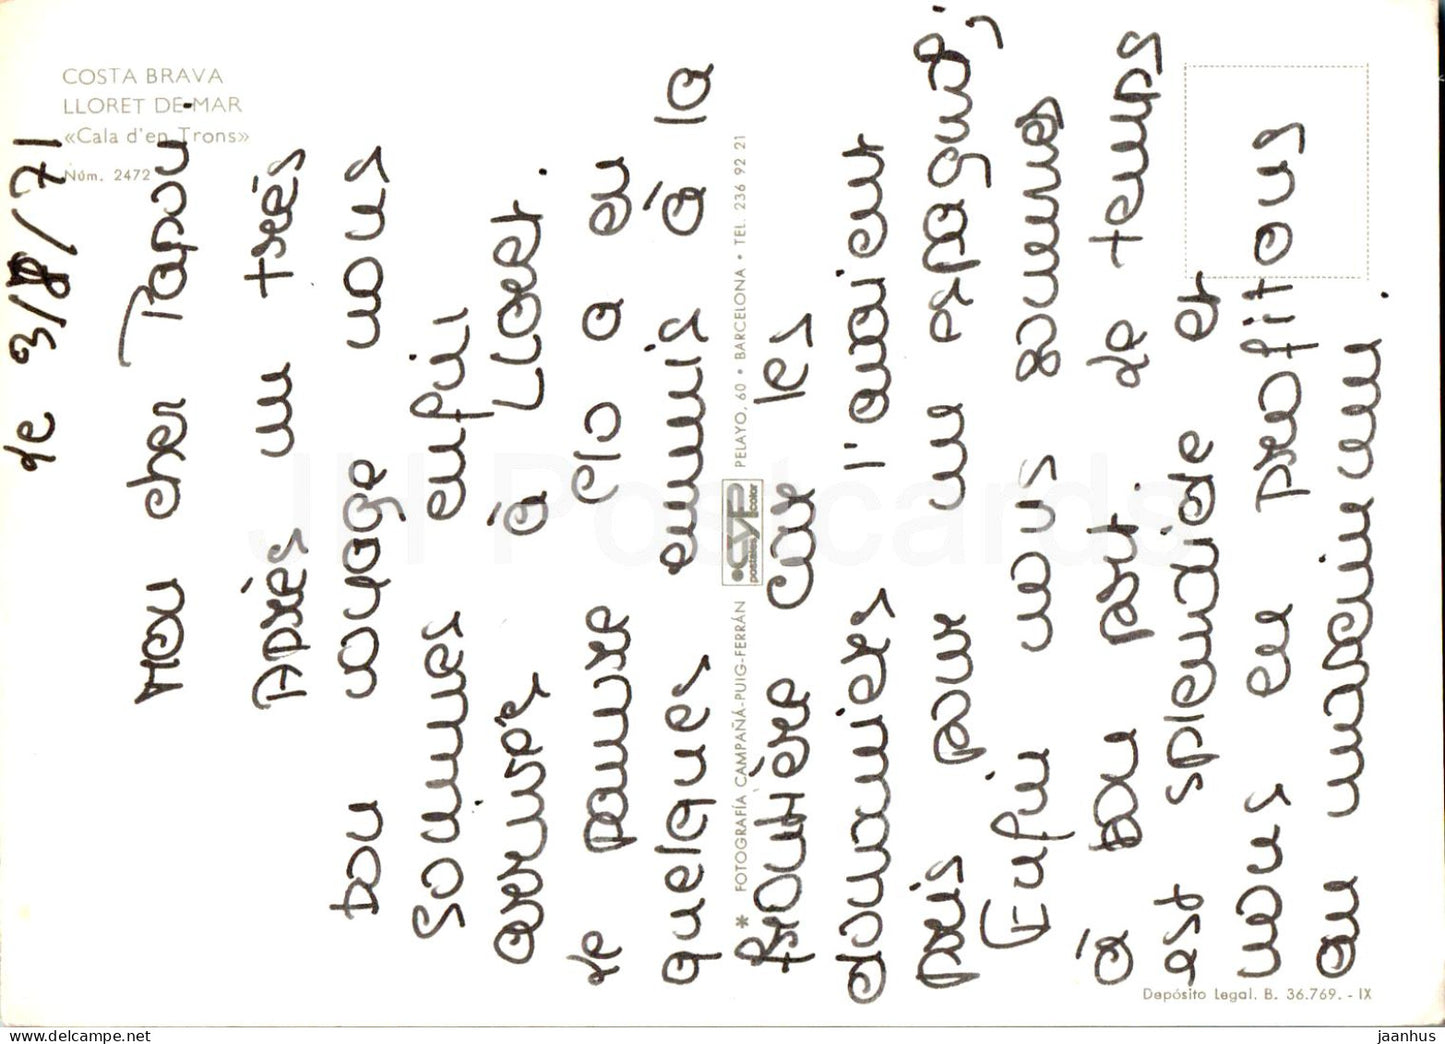 COSTA BRAVA
LLORET DE MAR
«Cala d'en Trons»
Núm. 2472
le 3/8/71
Mon cher Papou
Après un très
bon voyage nous
sommes enfin
arrivés à Lloret.
le pauvre Clo a eu
quelques ennuis à la
frontière car les
douaniers l'avaient
pris pour un espagnol,
Enfin nous sommes
à na part. de temps
est splendide et
nous en profitons
au maximum.
* FOTOGRAFÍA CAMPAÑÁ-PUIG-FERRÁN
CYP
postales color
PELAYO, 60 • BARCELONA • TEL. 236 92 21
Depósito Legal. B. 36.769. - IX
JH Postcards
jaanhus